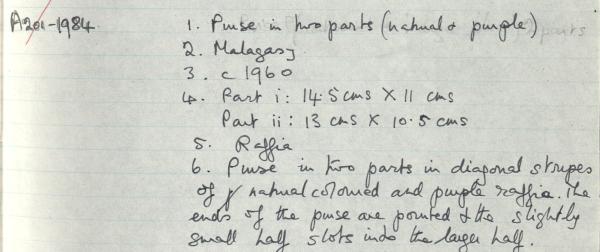 A201-1984
1. Purse in two parts (natural & purple)
2. Malagasy
3. c 1960
4. Part i: 14.5 cms X 11 cms
Part ii: 13 cms X 10.5 cms
5. Raffia
6. Purse in two parts in diagonal stripes
of natural coloured and purple raffia. The
ends of the purse are pointed & the slightly
small half slots into the larger half.